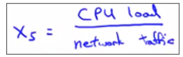 x₅ = CPU load / network traffic